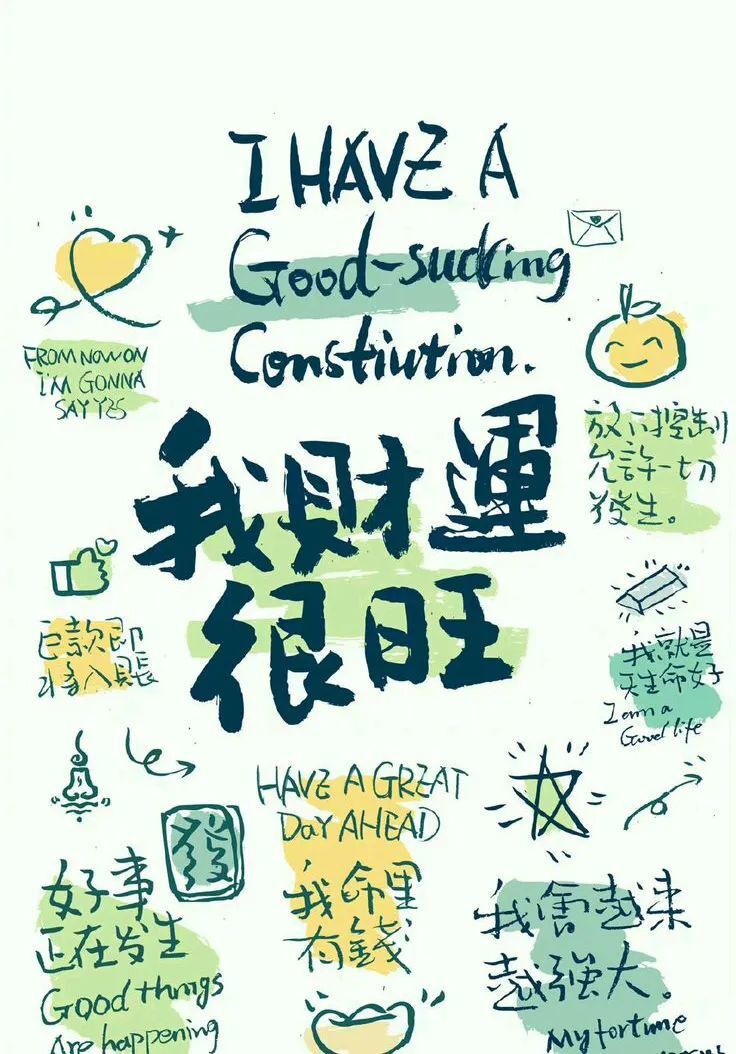 I HAVE A
Good-sucking
Constiution.
FROM NOW ON
I'M GONNA
SAY YES
我財運
很旺
放下控制
允許一切
發生。
巨款即
將入賬
我就是
天生命好
I am a
Good life
HAVE A GREAT
DAY AHEAD
發
我命里
有錢
好事
正在发生
Good things
Are happening
我會越來
越強大。
My fortune